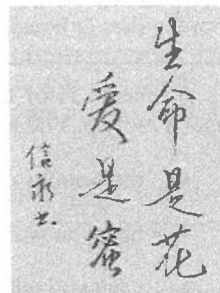 生命是花
爱是蜜
信永书